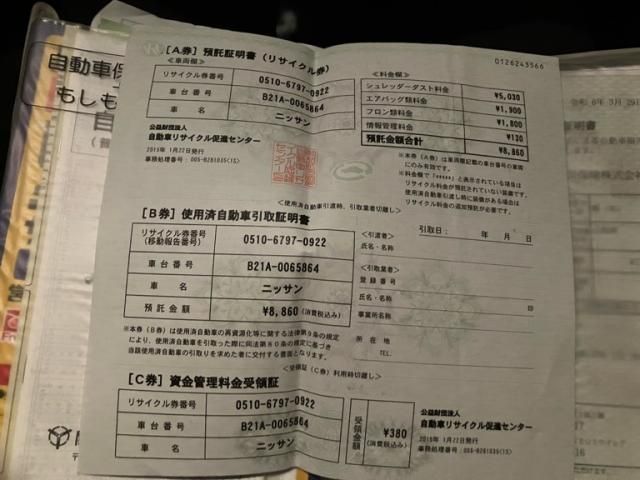 自動車保
もしも
0126243566
【A券】預託証明書（リサイクル券）
＜車両欄＞
リサイクル券番号 0510-6797-0922
車台番号 B21A-0065864
車名 ニッサン
公益財団法人
自動車リサイクル促進センター
2015年 1月22日発行
＜料金欄＞
シュレッダーダスト料金 ¥5,030
エアバッグ類料金 ¥1,900
フロン類料金 ¥1,800
情報管理料金 ¥130
預託金額合計 ¥8,860
＊本券（A券）は車両欄記載の車台番号の車両
にのみ有効です。
＊料金欄で「*****」と表示されている場合は
リサイクル料金が預託されていない装備です。
使用済自動車引渡し時に装備がある場合は
リサイクル料金の追加預託が必要です。
＜使用済自動車引渡時、引取業者切離し＞
【B券】使用済自動車引取証明書
リサイクル券番号
(移動報告番号) 0510-6797-0922
車台番号 B21A-0065864
車名 ニッサン
預託金額 ¥8,860 (消費税込み)
引取日： 年 月 日
＜引渡者＞
氏名・名称
＜引取業者＞
登録番号
氏名・名称 印
事業所名称
所在地
TEL.
＊本券（B券）は使用済自動車の再資源化等に関する法律第9条の規定
により、使用済自動車を引取った際に同法第80条の規定に基づき
当該使用済自動車の引取りを求めた者に交付する書面となります。
＜受領証（C券）利用時切離し＞
【C券】資金管理料金受領証
リサイクル券番号 0510-6797-0922
車台番号 B21A-0065864
車名 ニッサン
受領金額 ¥380 (消費税込み)
公益財団法人
自動車リサイクル促進センター
2015年 1月22日発行
令和 6年 3月29